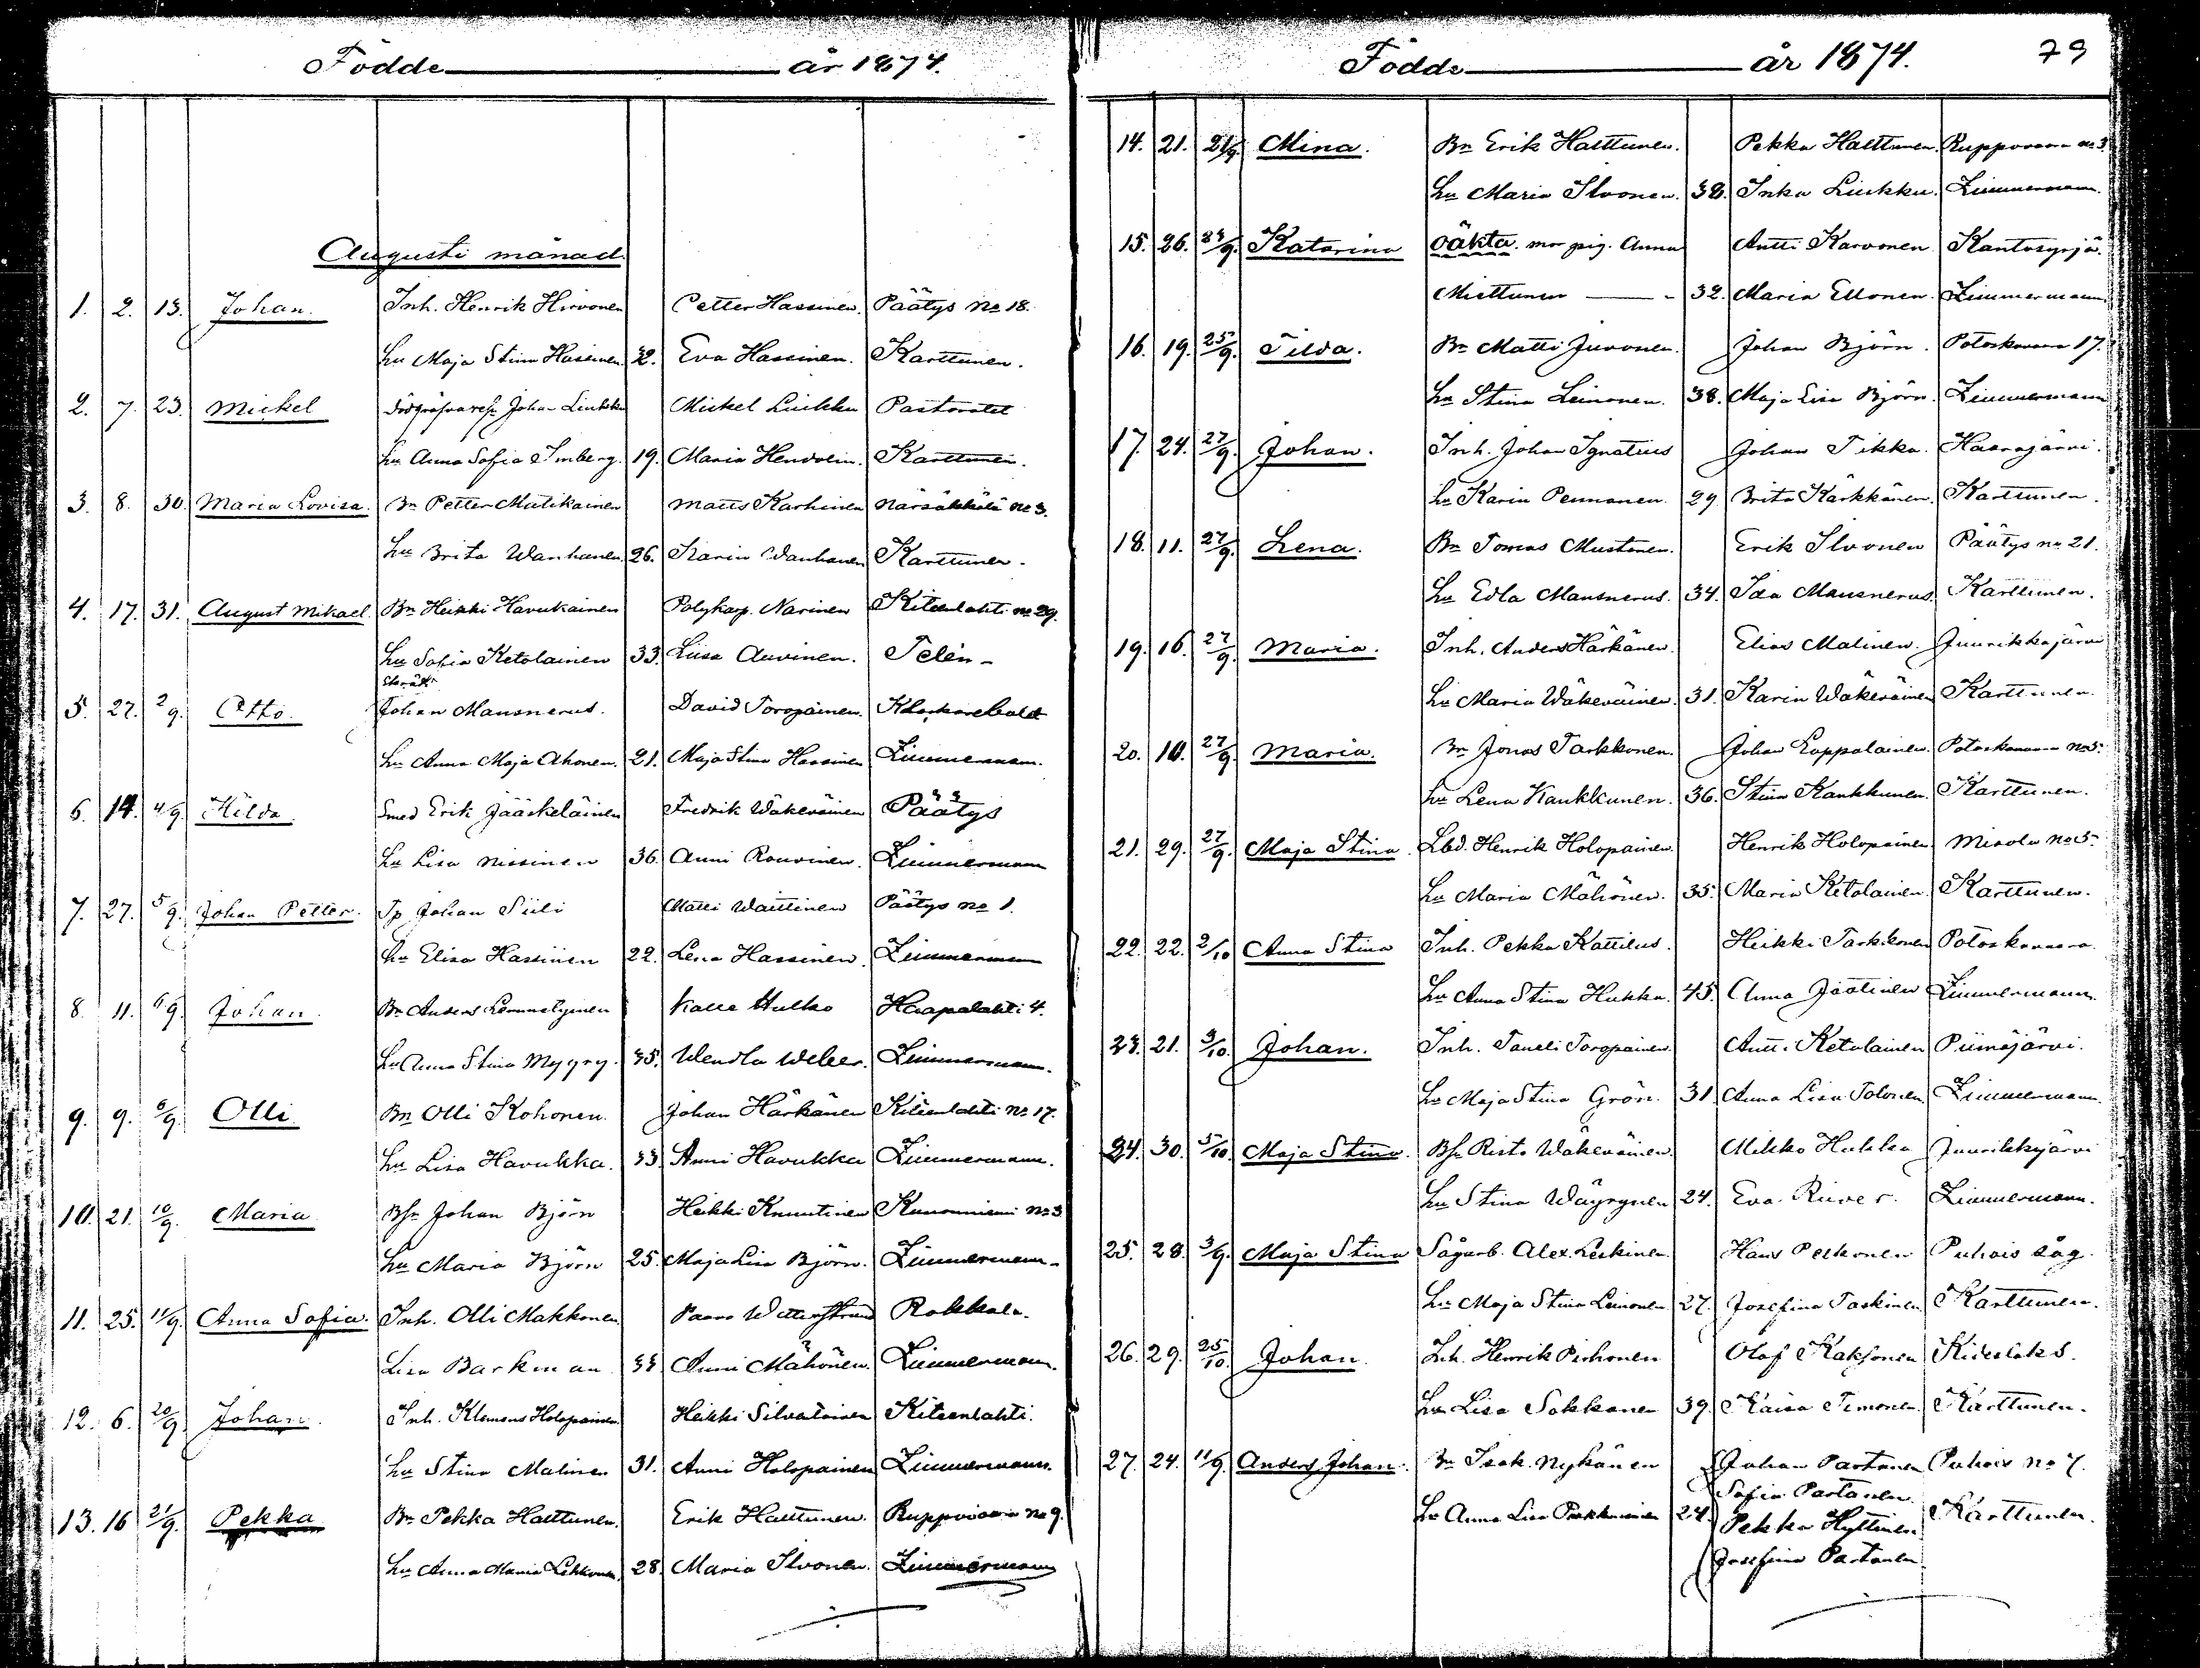 Födde år 1874.
Augusti månad.
1. 2. 13. Johan. Inh. Henrik Hirvonen Petter Hassinen. Päätys No 18.
hu Maja Stina Hassinen 32. Eva Hassinen. Karttunen.
2. 7. 23. Mickel Johan Liukku Mickel Liukku Pastoratet
hu Anna Sofia Imberg. 19. Maria Hendolin. Karttunen.
3. 8. 30. Maria Lovisa. Bn Petter Matikainen Matts Karhinen Närsäkkälä No 3.
hu Brita Wanhanen 26. Karin Wanhanen Karttunen.
4. 17. 31. August Mikael. Bn Heikki Havukainen Polykarp. Narinen Kiteenlahti no 29.
hu Sofia Ketolainen 33. Liisa Auvinen. Telén-
5. 27. 2/9. Otto. Johan Mausnerus. David Toropainen.
hu Anna Maja Ahonen. 21. Maja Stina Hassinen Zimmermann.
6. 14. 4/9. Hilda. Smed Erik Jääskeläinen Fredrik Wäkeväinen Päätys
hu Lisa Nissinen 36. Anni Rouvinen. Zimmermann
7. 27. 5/9. Johan Petter. Tp Johan Siili Matti Waittinen Päätys no 1.
hu Elisa Hassinen 22. Lena Hassinen. Zimmermann
8. 11. 6/9. Johan. Bn Anders Lemmetyinen Kalle Hulko Haapalahti 4.
hu Anna Stina Mygry. 35. Wendla Weber. Zimmermann.
9. 9. 6/9. Olli. Bn Olli Kohonen. Johan Härkänen Kiteenlahti No 17.
hu Lisa Havukka. 33. Anni Havukka Zimmermann.
10. 21. 10/9. Maria Bsn Johan Björn Heikki Knuutinen Kunonniemi No 3
hu Maria Björn 25. Maja Lisa Björn. Zimmermann-
11. 25. 11/9. Anna Sofia. Inh. Olli Makkonen Paavo Rokkala.
Lisa Barkman 33 Anni Mähönen. Zimmermann.
12. 6. 20/9. Johan. Inh. Klemens Holopainen Heikki Silvatoinen Kiteenlahti.
hu Stina Malinen 31. Anni Holopainen Zimmermann.
13. 16 21/9. Pekka Bn Pekka Halttunen. Erik Halttunen. Ruppovaara no 9.
hu Anna Maria Lehkonen. 28. Maria Ilvonen. Zimmermann
Födde år 1874. 79
14. 21. 21/9. Mina. Bn Erik Halttunen. Pekka Halttunen. Ruppovaara no 3.
hu Maria Ilvonen. 38. Inka Liukku. Zimmermann.
15. 26. 23/9. Katarina oäkta. mor pig. Anna Antti Karvonen Kantosyrjä.
Miettunen - 32. Maria Ellonen. Zimmermann
16. 19. 25/9. Tilda. Bn Matti Juvonen. Johan Björn. Potoskavaara 17.
hu Stina Leinonen. 38. Maja Lisa Björn. Zimmermann
17. 24. 27/9. Johan. Inh. Johan Ignatius Johan Tikka. Haarajärvi.
hu Karin Pennanen. 29 Brita Kärkkänen. Karttunen.
18. 11. 27/9. Lena. Bn Tomas Mustonen. Erik Ilvonen Päätys no 21.
hu Edla Mausnerus. 34. Ida Mausnerus. Karttunen.
19. 16. 27/9. Maria. Inh. Anders Härkänen. Elias Malinen. Juurikkajärvi
hu Maria Wäkeväinen. 31. Karin Wäkeväinen Karttunen.
20. 10. 27/9. Maria. Bn Jonas Tarkkonen. Johan Lappalainen. Potoskavaara No 5.
hu Lena Kaukkunen. 36. Stina Kaukkunen. Karttunen.
21. 29. 27/9. Maja Stina. Lbd. Henrik Holopainen. Henrik Holopainen Misola No 5.
hu Maria Mähönen. 35. Maria Ketolainen. Karttunen.
22. 22. 2/10 Anna Stina Inh. Pekka Kattilus. Heikki Tarkkonen Potoskavaara.
hu Anna Stina Hukka. 45. Anna Jäätinen Zimmermann.
23. 21. 3/10. Johan. Inh. Taneli Toropainen. Antti Ketolainen Piimäjärvi.
hu Maja Stina Grön. 31. Anna Lisa Tolonen. Zimmermann.
24. 30. 5/10. Maja Stina. Bsn Risto Wäkeväinen. Mikko Hukka Juurikkajärvi
hu Stina Wäyrynen 24. Eva River. Zimmermann.
25. 28. 3/9. Maja Stina Sågarb. Alex. Leskinen. Hans Pekonen Puhois såg.
hu Maja Stina Leinonen. 27. Josefina Taskinen. Karttunen.
26. 29. 25/10. Johan. Inh. Henrik Pirhonen Olof Kaksonen Kiderlaks.
hu Lisa Sokkanen 39. Kaisa Timonen. Karttunen.
27. 24. 11/9. Anders Johan. Bn Isak. Nykänen Johan Partanen Puhois no 7.
Sofia Partanen.
hu Anna Lisa 24. Pekka Hyttinen. Karttunen.
Josefina Partanen.